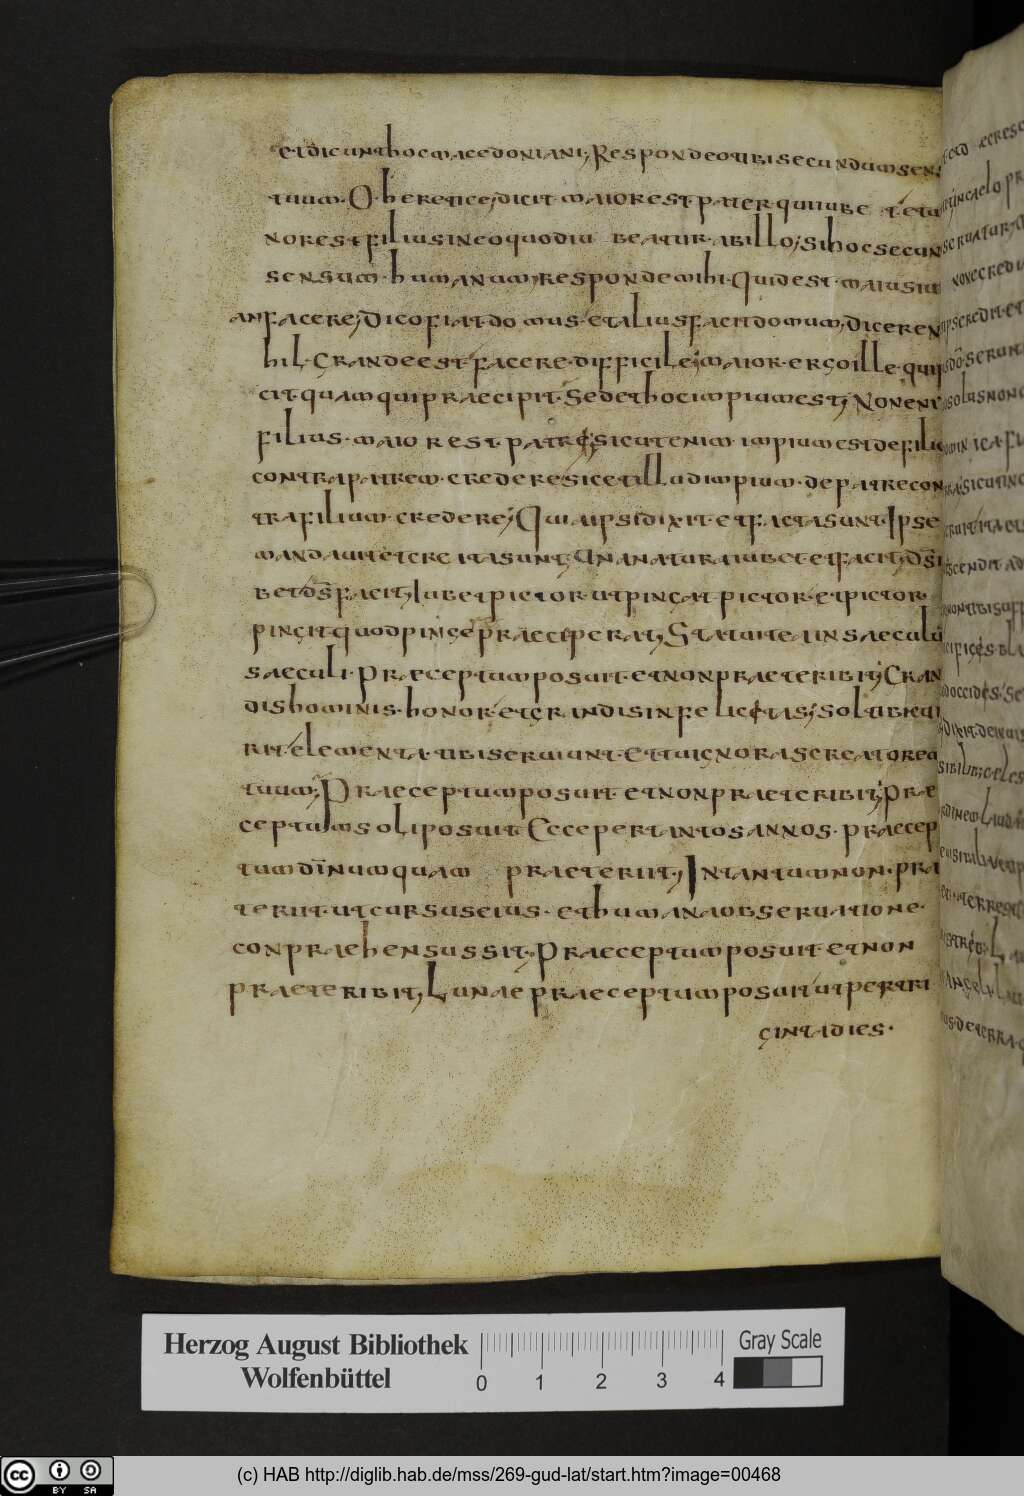 et dicunt hoc macedoniani; Respondeo tibi secundum sen
tuum. O heretice; dicit maior est pater qui iubet et
nor est filius in eo quod iu beatur ab illo; Si hoc secun
sensum humanum; responde mihi. Quid est maius iu
an facere; Dico fiat domus. et alius facit domum; dicere n
hil. Grande est facere. difficile; maior. ergo ille. qui
cit. quam qui praecipit. Sed et hoc impium est; Non eni
filius. maior est. patre; sicut enim impium est de fili
contra patrem. credere sic et illud impium. de patre con
tra filium. credere; Quia ipsi dixit. et facta sunt. Ipse
mandauit et cre ita sunt; Una natura iubet et facit; ds i
bet ds facit; Iubet pictor. ut pingat pictor. et pictor
pingit. quod pinge praeceperat; Statuit ea in saeculu
saeculi. Praeceptum posuit. et non praeteribit; Gran
dis hominis. honor. et grandis infelicitas; Sol tibi cu
rit. elementa. tibi seruiunt. Et tu ignoras creatorem
tuum; Praeceptum posuit. et non praeteribit; Prae
ceptum soli posuit. Ecce per tantos annos. praecep
tum dinumquam praeteriit; In tantum non. prae
teriit. ut cursus eius. et humana obseruatione.
conpraehensus sit. Praeceptum posuit. et non
praeteribit; Lunae praeceptum posuit ut per tri
ginta dies.
Herzog August Bibliothek
Wolfenbüttel
0 1 2 3 4
Gray Scale
cc BY SA
(c) HAB http://diglib.hab.de/mss/269-gud-lat/start.htm?image=00468